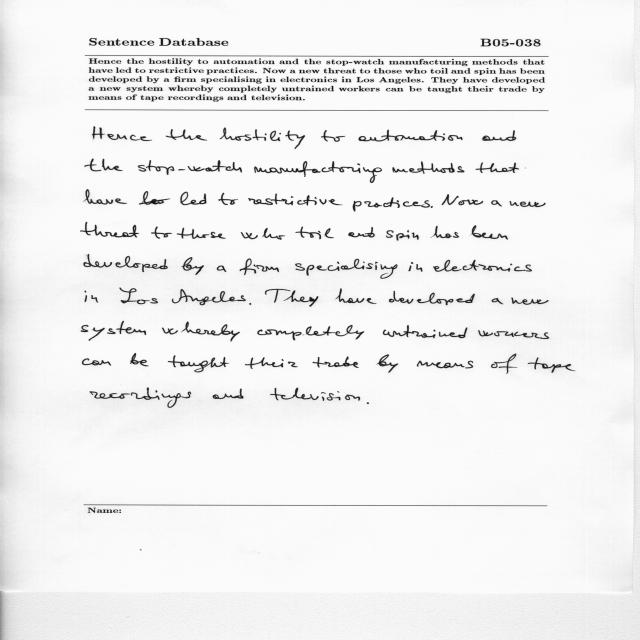 Sentence Database B05-038
Hence the hostility to automation and the stop-watch manufacturing methods that
have led to restrictive practices. Now a new threat to those who toil and spin has been
developed by a firm specialising in electronics in Los Angeles. They have developed
a new system whereby completely untrained workers can be taught their trade by
means of tape recordings and television.
Hence the hostility to automation and
the stop-watch manufactoring methods that
have led to restrictive practices. Now a new
threat to those who toil and spin has been
developed by a firm specialising in electronics
in Los Angeles. They have developed a new
system whereby completely untrained workers
can be taught their trade by means of tape
recordings and television.
Name: